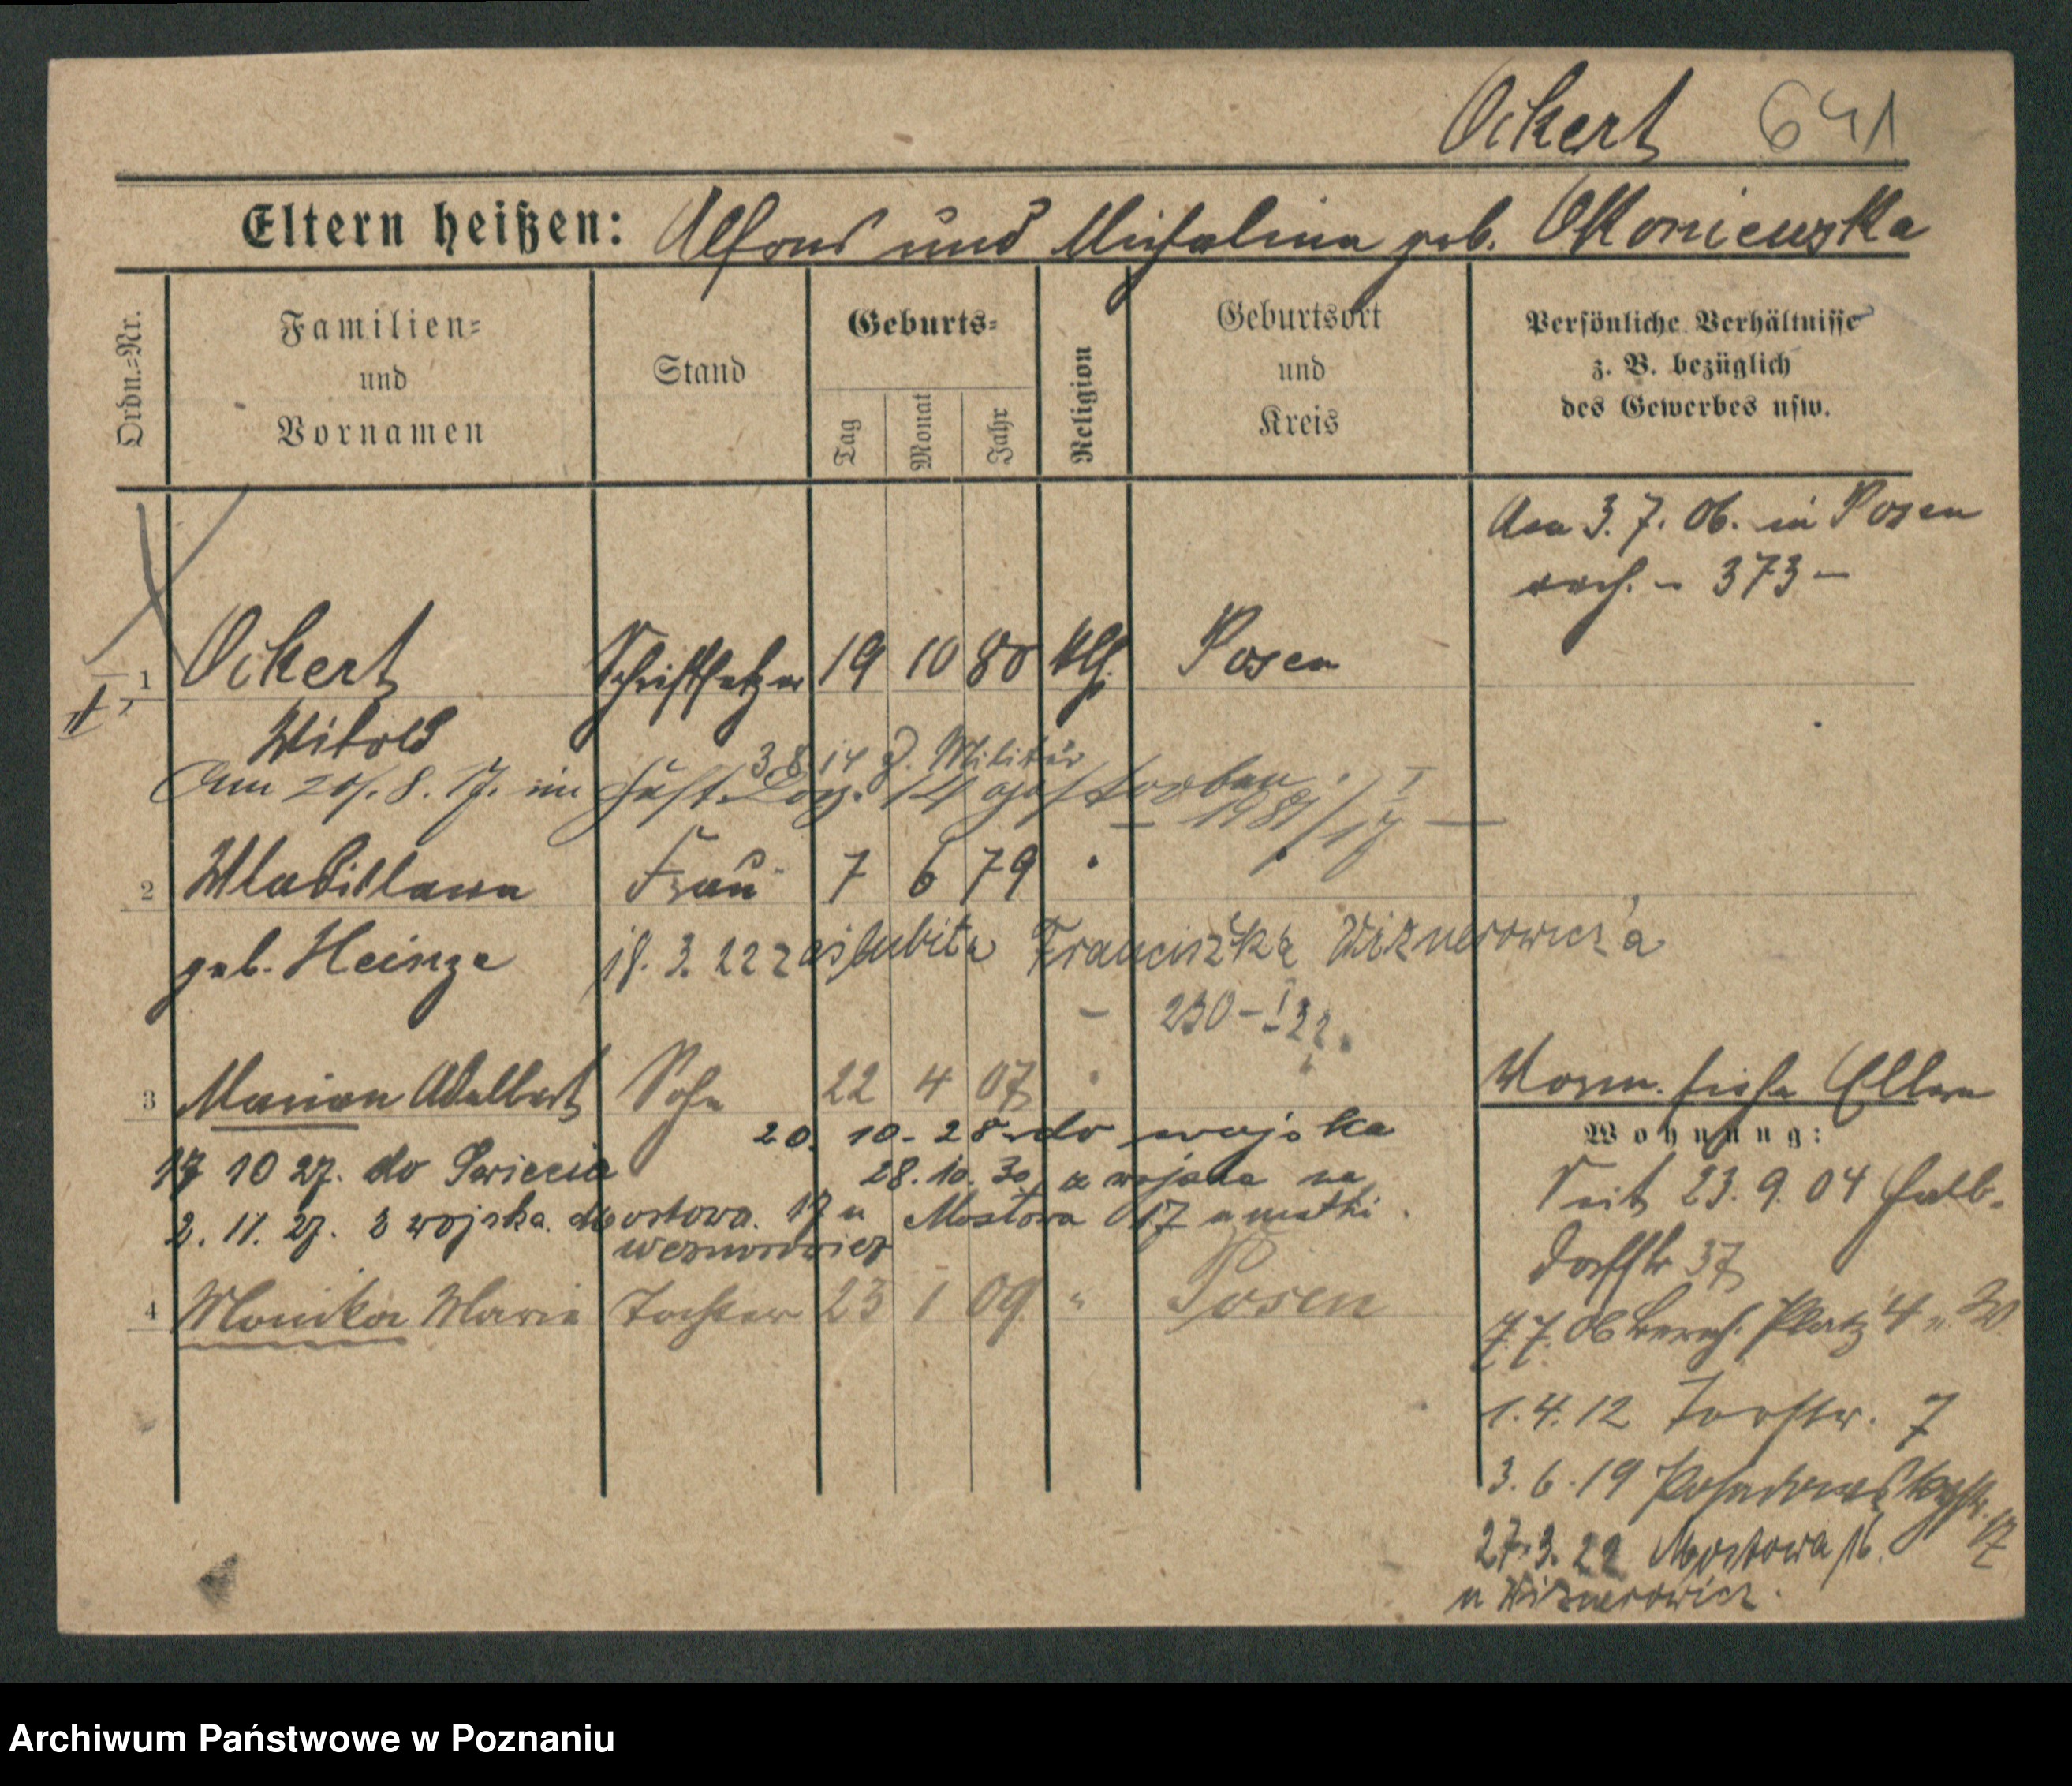 Oikert 641
Eltern heißen: Alfons und Michalina geb. Okoniewska
Ordn.=Nr.
Familien=
und
Vornamen
Stand
Geburts=
Tag
Monat
Jahr
Religion
Geburtsort
und
Kreis
Persönliche Verhältnisse
z. B. bezüglich
des Gewerbes usw.
Am 3. 7. 06. in Posen
373 —
1 Oikert Schriftsetzer 19 10 80 kth. Posen
Witold
3 8 14 z. Militär
Am 20. 8. 17. im Fest. Laz. gestorben. I
— 1981/17 —
2 Wladislawa Frau 7 6 79 "
geb. Heinze 18. 3. 22 zaślubiła Franciszka Wiznerowicz'a
— 230 - I 22.
3 Marian Adalbert Sohn 22 4 07 "
20. 10. 28 do wojska
17 10 27. do Świecia
28. 10. 30 z wojska na
2. 11. 27. z wojska. Mostowa. 17 u Mostowa 17 u matki.
4 Monika Maria Tochter 23 1 09 " Posen
Vorm. siehe Eltern
Wohnung:
Seit 23. 9. 04 Halb-
dorfstr 37
7. 7. 06 Bernh. Platz 4 II W.
1. 4. 12 Torstr. 7
3. 6. 19 Posadowskystr. 17
27. 3. 22 Mostowa
u Wiznerowicz.
Archiwum Państwowe w Poznaniu